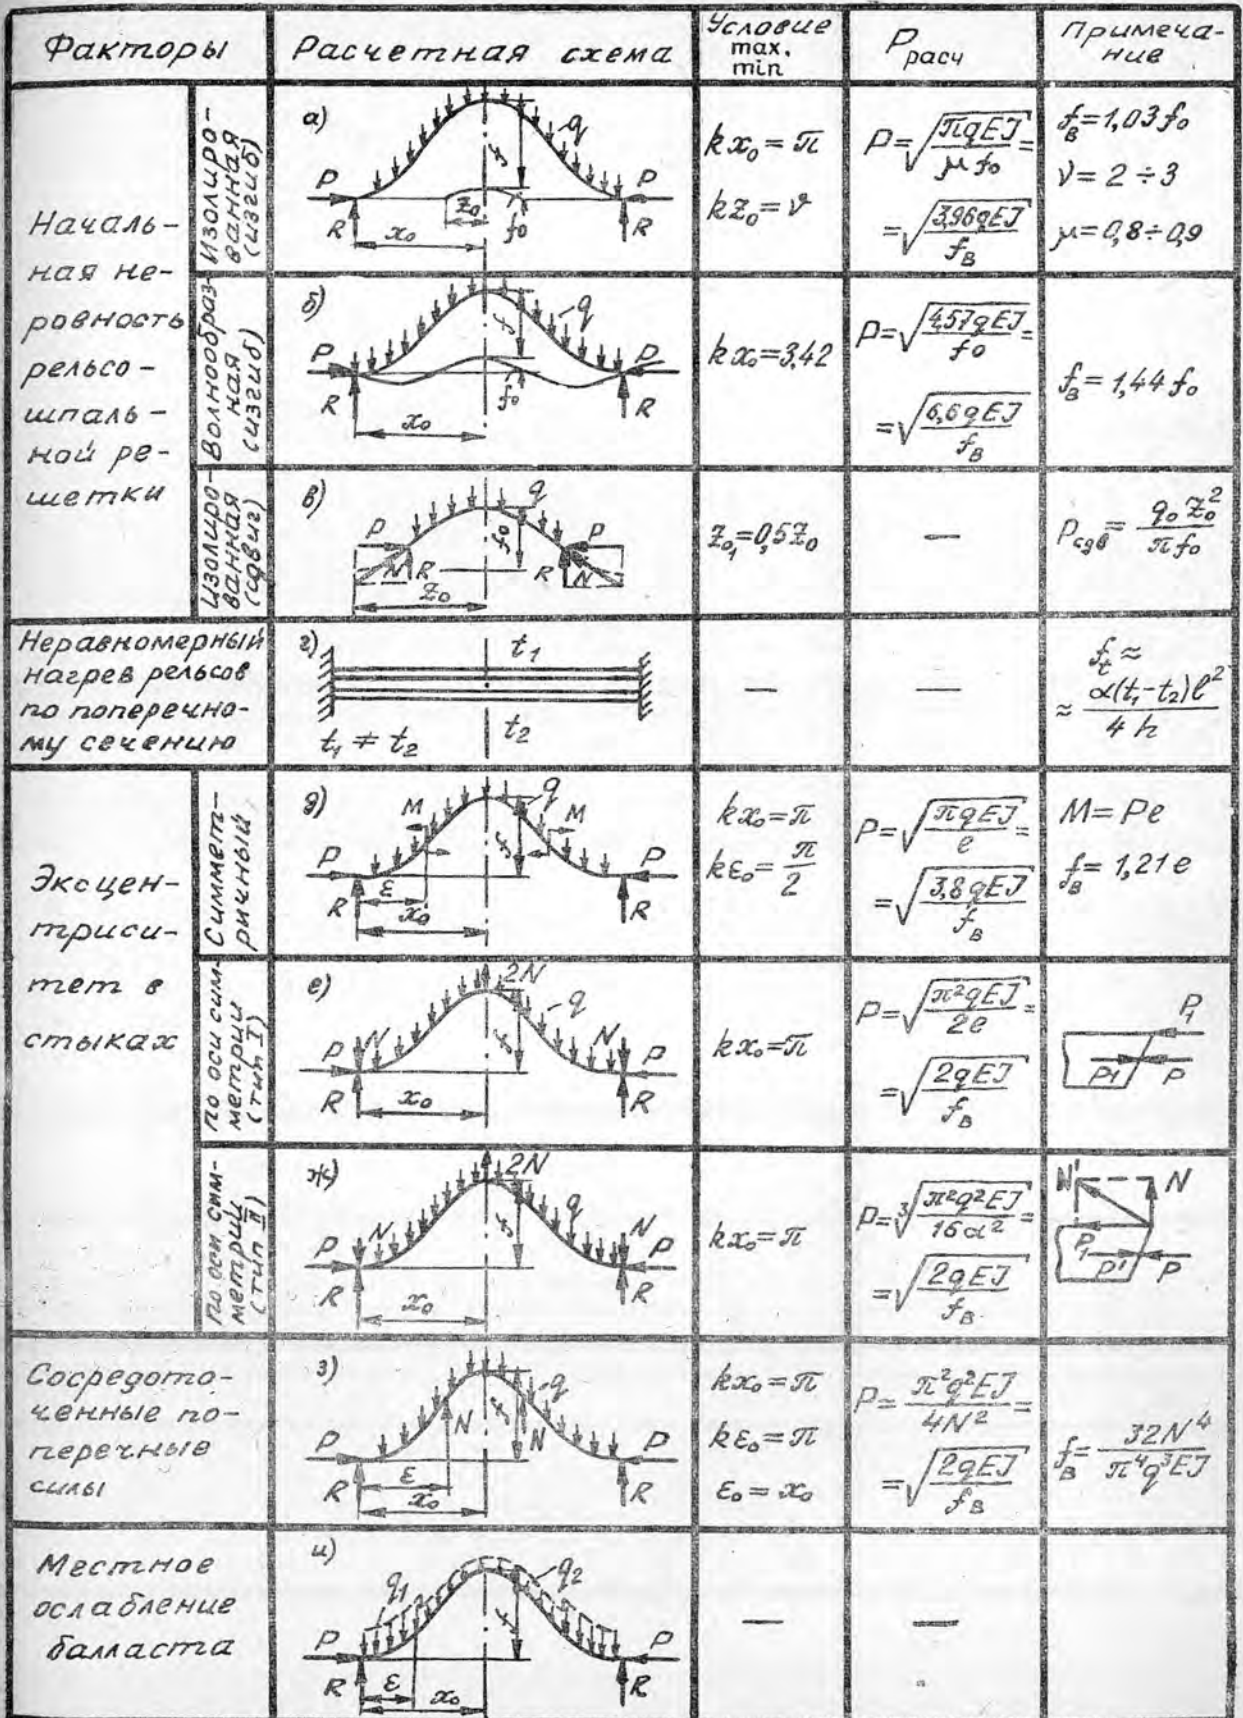 Факторы
Расчетная схема
Условие
max,
min
Pрасч
Примеча-
ние
Началь-
ная не-
ровность
рельсо-
шпаль-
ной ре-
шетки
Изолиро-
ванная
(изгиб)
а)
q
f
P
P
z₀
f₀
R
x₀
R
kx₀ = π
kz₀ = ν
P=√(πqEJ/μf₀)=
=√(3,96qEJ/fв)
fв=1,03f₀
ν= 2÷3
μ=0,8÷0,9
Волнообраз-
ная
(изгиб)
б)
q
f
P
P
f₀
R
x₀
R
kx₀=3,42
P=√(4,57qEJ/f₀)=
=√(6,6qEJ/fв)
fв=1,44f₀
Изолиро-
ванная
(сдвиг)
в)
q
P
f₀
P
N
R
R
N
z₀
z₀₁=0,5z₀
—
Pсдв=q₀z₀²/πf₀
Неравномерный
нагрев рельсов
по поперечно-
му сечению
г)
t₁
t₁ ≠ t₂
t₂
—
—
ft ≈
≈ α(t₁-t₂)l²/4h
Эксцен-
триси-
тет в
стыках
Симмет-
ричный
д)
q
M
M
f
P
P
ε
R
x₀
R
kx₀=π
kε₀=π/2
P=√(πqEJ/e)=
=√(3,8qEJ/fв)
M=Pe
fв=1,21e
по оси сим-
метрии
(тип I)
е)
2N
q
f
P
N
N
P
R
x₀
R
kx₀=π
P=√(π²qEJ/2e)=
=√(2qEJ/fв)
P₁
P₁
P
по оси сим-
метрии
(тип II)
ж)
2N
q
f
P
N
N
P
R
x₀
R
kx₀=π
P=∛(π²q²EJ/16α²)=
=√(2qEJ/fв)
N'
N
P₁
P'
P
Сосредото-
ченные по-
перечные
силы
з)
q
f
N
N
P
P
ε
R
x₀
R
kx₀=π
kε₀=π
ε₀=x₀
P=π²q²EJ/4N²=
=√(2qEJ/fв)
fв=32N⁴/π⁴q³EJ
Местное
ослабление
балласта
и)
q₁
q₂
f
P
P
R
ε
x₀
R
—
—